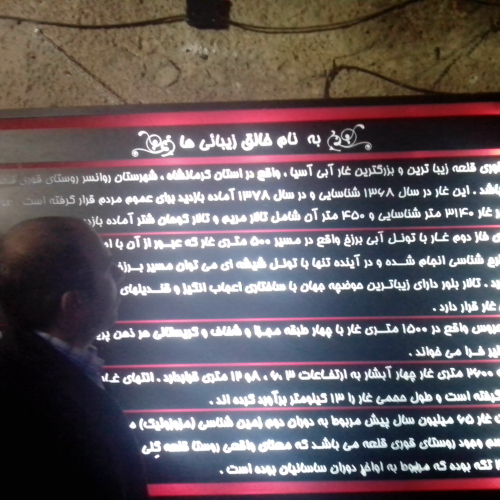 به نام خالق زیبائی ها
قوری قلعه زیبا ترین و بزرگترین غار آبی آسیا ، واقع در استان کرمانشاه ، شهرستان روانسر روستای قوری قلعه
باشد . این غار در سال ۱۳۶۸ شناسایی و در سال ۱۳۷۸ آماده بازدید برای عموم مردم قرار گرفته است .
غار ۳۱۴۰ متر شناسایی و ۴۵۰ متر آن شامل تالار مریم و تالار کوهان شتر آماده بازدید
فاز دوم غار با تونل آبی برزخ واقع در مسیر ۵۰۰ متری غار که عبور از آن با
شناسی انجام شده و در آینده تنها با تونل شیشه ای می توان مسیر برزخ
. تالار بلور دارای زیباترین حوضچه جهان با ساختاری اعجاب انگیز و قندیلهای
غار قرار دارد .
واقع در ۱۵۰۰ متری غار با چهار طبقه مجزا و شفاف و کریستالی هر ذهن
فرا می خواند .
متری غار چهار آبشار به ارتفاعات ۳ ،۶ ، ۸و ۱۲ متری قراردارد . انتهای
گرفته است و طول حجمی غار را ۱۳ کیلومتر برآورد کرده اند .
غار ۶۵ میلیون سال پیش مربوط به دوران دوم زمین شناسی (مزوزوئیک)
وجود روستای قوری قلعه می باشد که معنای واقعی روستا قلعه گلی
تکه بوده که مربوط به اواخر دوران ساسانیان بوده است .